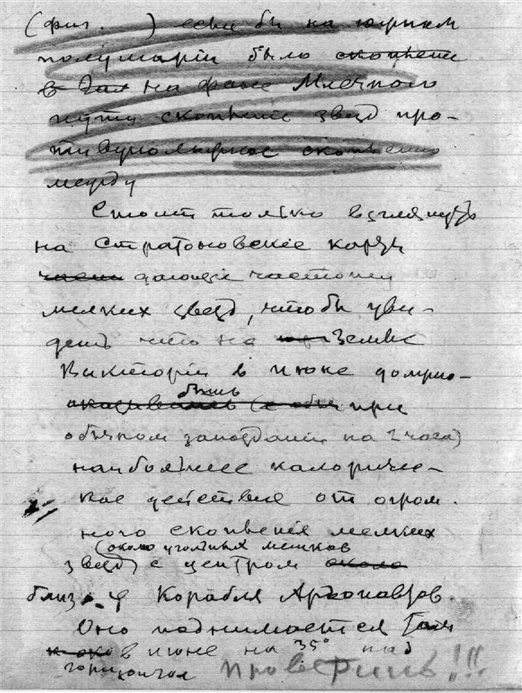 (фиг. ) если бы на южном
полушаріи было скопленіе
в на фоне Млечного
пути скопленіе звезд про-
тивуположное скопленію
между
Стоит только взглянуть
на Стратоновскіе карты
дающіе частоту
мелких звезд, чтобы уви-
деть что на Земле
Викторіи в июне должно
быть
(при
обычном запоздании на 2 часа)
наибольшее калориче-
кое действие от огром-
ного скопленія мелких
(около угольных мешков
звезд) с центром около
близ φ Корабля Аргонавтов.
Оно поднимается
в июне на 35° над
горизонтом проверить!!!